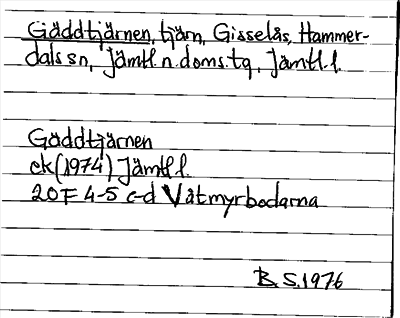 Gäddtjärnen, tjärn, Gisselås, Hammer-
dals sn, Jämtl. n. doms. tg, Jämtl. l.
Gäddtjärnen
ek (1974) Jämtl l.
20F 4-5 c-d Våtmyrbodarna
B. S. 1976